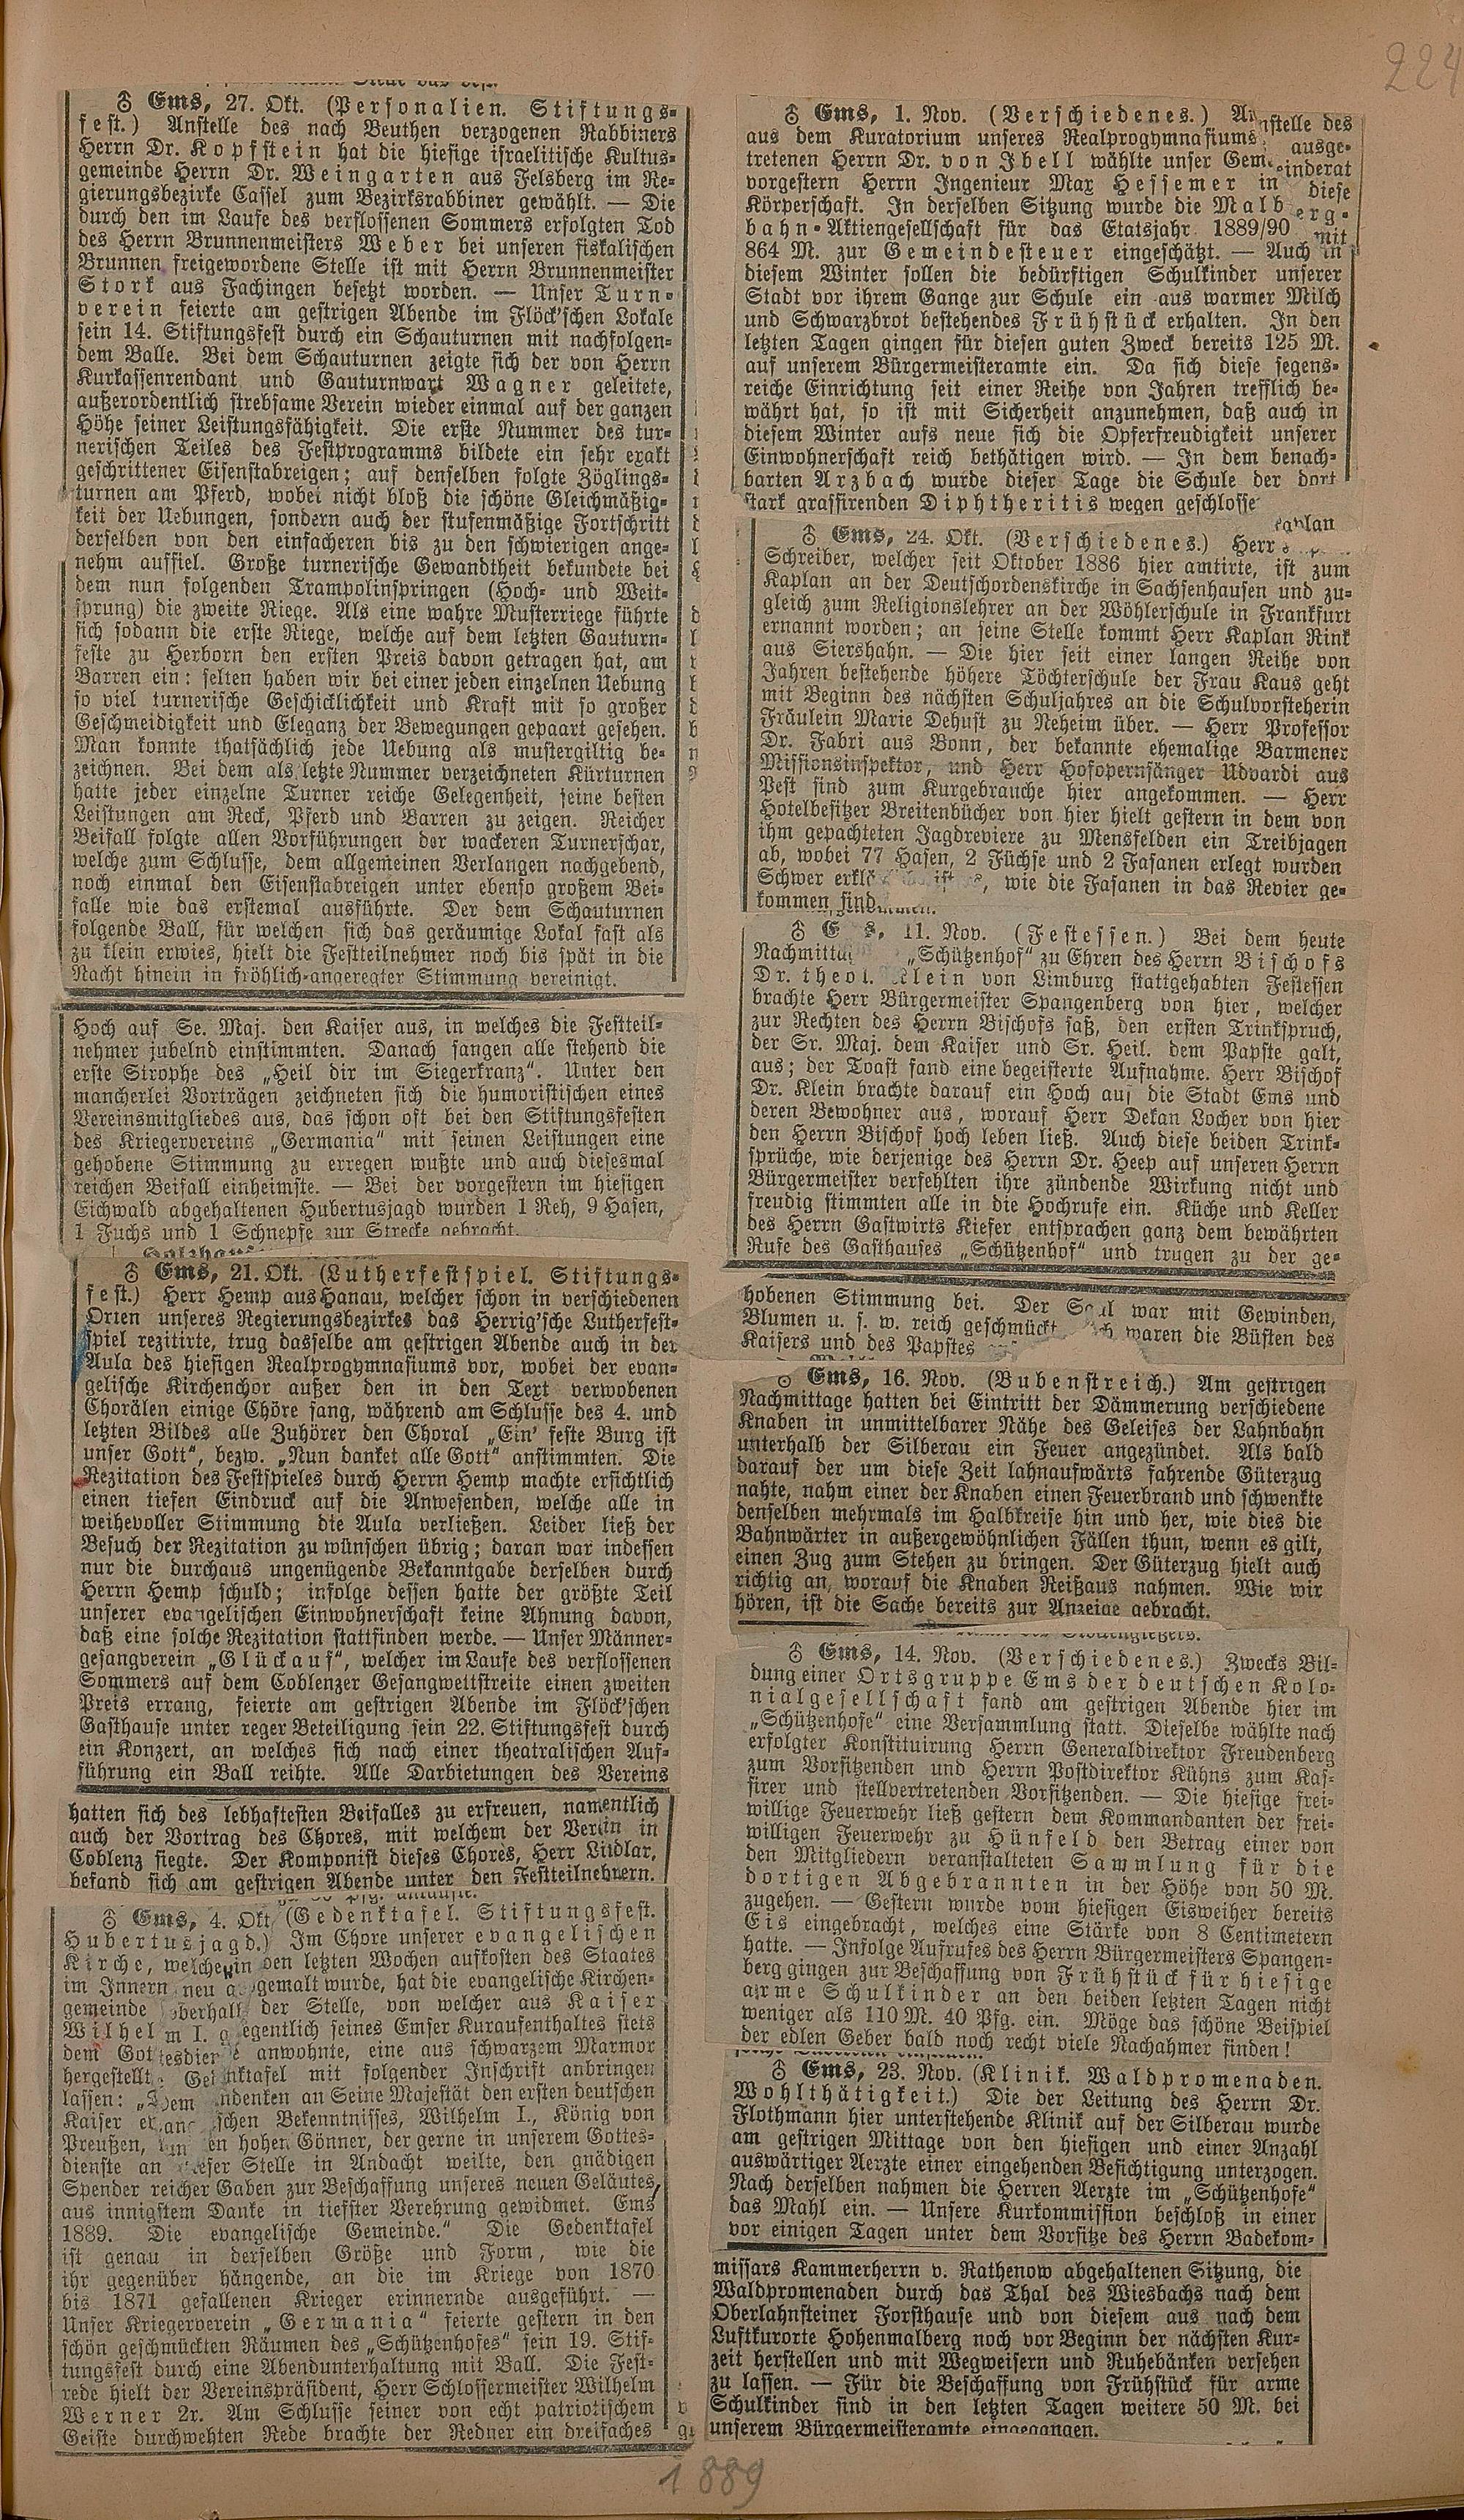 224
♁ Ems, 27. Okt. (Personalien. Stiftungs-
fest.) Anstelle des nach Beuthen verzogenen Rabbiners
Herrn Dr. Kopfstein hat die hiesige israelitische Kultus-
gemeinde Herrn Dr. Weingarten aus Felsberg im Re-
gierungsbezirke Cassel zum Bezirksrabbiner gewählt. — Die
durch den im Laufe des verflossenen Sommers erfolgten Tod
des Herrn Brunnenmeisters Weber bei unseren fiskalischen
Brunnen freigewordene Stelle ist mit Herrn Brunnenmeister
Stork aus Fachingen besetzt worden. — Unser Turn-
verein feierte am gestrigen Abende im Flöck'schen Lokale
sein 14. Stiftungsfest durch ein Schauturnen mit nachfolgen-
dem Balle. Bei dem Schauturnen zeigte sich der von Herrn
Kurkassenrendant und Gauturnwart Wagner geleitete,
außerordentlich strebsame Verein wieder einmal auf der ganzen
Höhe seiner Leistungsfähigkeit. Die erste Nummer des tur-
nerischen Teiles des Festprogramms bildete ein sehr exakt
geschrittener Eisenstabreigen; auf denselben folgte Zöglings-
turnen am Pferd, wobei nicht bloß die schöne Gleichmäßig-
keit der Uebungen, sondern auch der stufenmäßige Fortschritt
derselben von den einfacheren bis zu den schwierigen ange-
nehm auffiel. Große turnerische Gewandtheit bekundete bei
dem nun folgenden Trampolinspringen (Hoch- und Weit-
sprung) die zweite Riege. Als eine wahre Musterriege führte
sich sodann die erste Riege, welche auf dem letzten Gauturn-
feste zu Herborn den ersten Preis davon getragen hat, am
Barren ein: selten haben wir bei einer jeden einzelnen Uebung
so viel turnerische Geschicklichkeit und Kraft mit so großer
Geschmeidigkeit und Eleganz der Bewegungen gepaart gesehen.
Man konnte thatsächlich jede Uebung als mustergiltig be-
zeichnen. Bei dem als letzte Nummer verzeichneten Kürturnen
hatte jeder einzelne Turner reiche Gelegenheit, seine besten
Leistungen am Reck, Pferd und Barren zu zeigen. Reicher
Beifall folgte allen Vorführungen der wackeren Turnerschar,
welche zum Schlusse, dem allgemeinen Verlangen nachgebend,
noch einmal den Eisenstabreigen unter ebenso großem Bei-
falle wie das erstemal ausführte. Der dem Schauturnen
folgende Ball, für welchen sich das geräumige Lokal fast als
zu klein erwies, hielt die Festteilnehmer noch bis spät in die
Nacht hinein in fröhlich-angeregter Stimmung vereinigt.
Hoch auf Se. Maj. den Kaiser aus, in welches die Festteil-
nehmer jubelnd einstimmten. Danach sangen alle stehend die
erste Strophe des „Heil dir im Siegerkranz“. Unter den
mancherlei Vorträgen zeichneten sich die humoristischen eines
Vereinsmitgliedes aus, das schon oft bei den Stiftungsfesten
des Kriegervereins „Germania“ mit seinen Leistungen eine
gehobene Stimmung zu erregen wußte und auch diesesmal
reichen Beifall einheimste. — Bei der vorgestern im hiesigen
Eichwald abgehaltenen Hubertusjagd wurden 1 Reh, 9 Hasen,
1 Fuchs und 1 Schnepfe zur Strecke gebracht.
♁ Ems, 21. Okt. (Lutherfestspiel. Stiftungs-
fest.) Herr Hemp aus Hanau, welcher schon in verschiedenen
Orten unseres Regierungsbezirkes das Herrig'sche Lutherfest-
spiel rezitirte, trug dasselbe am gestrigen Abende auch in der
Aula des hiesigen Realprogymnasiums vor, wobei der evan-
gelische Kirchenchor außer den in den Text verwobenen
Chorälen einige Chöre sang, während am Schlusse des 4. und
letzten Bildes alle Zuhörer den Choral „Ein' feste Burg ist
unser Gott“, bezw. „Nun danket alle Gott“ anstimmten. Die
Rezitation des Festspieles durch Herrn Hemp machte ersichtlich
einen tiefen Eindruck auf die Anwesenden, welche alle in
weihevoller Stimmung die Aula verließen. Leider ließ der
Besuch der Rezitation zu wünschen übrig; daran war indessen
nur die durchaus ungenügende Bekanntgabe derselben durch
Herrn Hemp schuld; infolge dessen hatte der größte Teil
unserer evangelischen Einwohnerschaft keine Ahnung davon,
daß eine solche Rezitation stattfinden werde. — Unser Männer-
gesangverein „Glückauf“, welcher im Laufe des verflossenen
Sommers auf dem Coblenzer Gesangwettstreite einen zweiten
Preis errang, feierte am gestrigen Abende im Flöck'schen
Gasthause unter reger Beteiligung sein 22. Stiftungsfest durch
ein Konzert, an welches sich nach einer theatralischen Auf-
führung ein Ball reihte. Alle Darbietungen des Vereins
hatten sich des lebhaftesten Beifalles zu erfreuen, namentlich
auch der Vortrag des Chores, mit welchem der Verein in
Coblenz siegte. Der Komponist dieses Chores, Herr Lüdlar,
befand sich am gestrigen Abende unter den Festteilnehmern.
♁ Ems, 4. Okt. (Gedenktafel. Stiftungsfest.
Hubertusjagd.) Im Chore unserer evangelischen
Kirche, welche in den letzten Wochen aufkosten des Staates
im Innern neu gemalt wurde, hat die evangelische Kirchen-
gemeinde oberhalb der Stelle, von welcher aus Kaiser
Wilhelm I. gelegentlich seines Emser Kuraufenthaltes stets
dem Gottesdienste anwohnte, eine aus schwarzem Marmor
hergestellte Gedenktafel mit folgender Inschrift anbringen
lassen: „Dem Andenken an Seine Majestät den ersten deutschen
Kaiser evangelischen Bekenntnisses, Wilhelm I., König von
Preußen, en hohen Gönner, der gerne in unserem Gottes-
dienste an dieser Stelle in Andacht weilte, den gnädigen
Spender reicher Gaben zur Beschaffung unseres neuen Geläutes,
aus innigstem Danke in tiefster Verehrung gewidmet. Ems
1889. Die evangelische Gemeinde.“ Die Gedenktafel
ist genau in derselben Größe und Form, wie die
ihr gegenüber hängende, an die im Kriege von 1870
bis 1871 gefallenen Krieger erinnernde ausgeführt. —
Unser Kriegerverein „Germania“ feierte gestern in den
schön geschmückten Räumen des „Schützenhofes“ sein 19. Stif-
tungsfest durch eine Abendunterhaltung mit Ball. Die Fest-
rede hielt der Vereinspräsident, Herr Schlossermeister Wilhelm
Werner 2r. Am Schlusse seiner von echt patriotischem
Geiste durchwehten Rede brachte der Redner ein dreifaches
♁ Ems, 1. Nov. (Verschiedenes.) Anstelle des
aus dem Kuratorium unseres Realprogymnasiums ausge-
tretenen Herrn Dr. von Ibell wählte unser Gemeinderat
vorgestern Herrn Ingenieur Max Hessemer in diese
Körperschaft. In derselben Sitzung wurde die Malberg-
bahn-Aktiengesellschaft für das Etatsjahr 1889/90 mit
864 M. zur Gemeindesteuer eingeschätzt. — Auch in
diesem Winter sollen die bedürftigen Schulkinder unserer
Stadt vor ihrem Gange zur Schule ein aus warmer Milch
und Schwarzbrot bestehendes Frühstück erhalten. In den
letzten Tagen gingen für diesen guten Zweck bereits 125 M.
auf unserem Bürgermeisteramte ein. Da sich diese segens-
reiche Einrichtung seit einer Reihe von Jahren trefflich be-
währt hat, so ist mit Sicherheit anzunehmen, daß auch in
diesem Winter aufs neue sich die Opferfreudigkeit unserer
Einwohnerschaft reich bethätigen wird. — In dem benach-
barten Arzbach wurde dieser Tage die Schule der dort
stark grassirenden Diphtheritis wegen geschlosse
♁ Ems, 24. Okt. (Verschiedenes.) Herr Kaplan
Schreiber, welcher seit Oktober 1886 hier amtirte, ist zum
Kaplan an der Deutschordenskirche in Sachsenhausen und zu-
gleich zum Religionslehrer an der Wöhlerschule in Frankfurt
ernannt worden; an seine Stelle kommt Herr Kaplan Rink
aus Siershahn. — Die hier seit einer langen Reihe von
Jahren bestehende höhere Töchterschule der Frau Kaus geht
mit Beginn des nächsten Schuljahres an die Schulvorsteherin
Fräulein Marie Dehust zu Neheim über. — Herr Professor
Dr. Fabri aus Bonn, der bekannte ehemalige Barmener
Missionsinspektor, und Herr Hofopernsänger Udvardi aus
Pest sind zum Kurgebrauche hier angekommen. — Herr
Hotelbesitzer Breitenbücher von hier hielt gestern in dem von
ihm gepachteten Jagdreviere zu Mensfelden ein Treibjagen
ab, wobei 77 Hasen, 2 Füchse und 2 Fasanen erlegt wurden
Schwer erklä ist, wie die Fasanen in das Revier ge-
kommen sind.
♁ E s, 11. Nov. (Festessen.) Bei dem heute
Nachmittag „Schützenhof“ zu Ehren des Herrn Bischofs
Dr. theol. Klein von Limburg stattgehabten Festessen
brachte Herr Bürgermeister Spangenberg von hier, welcher
zur Rechten des Herrn Bischofs saß, den ersten Trinkspruch,
der Sr. Maj. dem Kaiser und Sr. Heil. dem Papste galt,
aus; der Toast fand eine begeisterte Aufnahme. Herr Bischof
Dr. Klein brachte darauf ein Hoch auf die Stadt Ems und
deren Bewohner aus, worauf Herr Dekan Locher von hier
den Herrn Bischof hoch leben ließ. Auch diese beiden Trink-
sprüche, wie derjenige des Herrn Dr. Heep auf unseren Herrn
Bürgermeister verfehlten ihre zündende Wirkung nicht und
freudig stimmten alle in die Hochrufe ein. Küche und Keller
des Herrn Gastwirts Kiefer entsprachen ganz dem bewährten
Rufe des Gasthauses „Schützenhof“ und trugen zu der ge-
hobenen Stimmung bei. Der Saal war mit Gewinden,
Blumen u. s. w. reich geschmückt waren die Büsten des
Kaisers und des Papstes
♁ Ems, 16. Nov. (Bubenstreich.) Am gestrigen
Nachmittage hatten bei Eintritt der Dämmerung verschiedene
Knaben in unmittelbarer Nähe des Geleises der Lahnbahn
unterhalb der Silberau ein Feuer angezündet. Als bald
darauf der um diese Zeit lahnaufwärts fahrende Güterzug
nahte, nahm einer der Knaben einen Feuerbrand und schwenkte
denselben mehrmals im Halbkreise hin und her, wie dies die
Bahnwärter in außergewöhnlichen Fällen thun, wenn es gilt,
einen Zug zum Stehen zu bringen. Der Güterzug hielt auch
richtig an, worauf die Knaben Reißaus nahmen. Wie wir
hören, ist die Sache bereits zur Anzeige gebracht.
♁ Ems, 14. Nov. (Verschiedenes.) Zwecks Bil-
dung einer Ortsgruppe Ems der deutschen Kolo-
nialgesellschaft fand am gestrigen Abende hier im
„Schützenhofe“ eine Versammlung statt. Dieselbe wählte nach
erfolgter Konstituirung Herrn Generaldirektor Freudenberg
zum Vorsitzenden und Herrn Postdirektor Kühns zum Kas-
sirer und stellvertretenden Vorsitzenden. — Die hiesige frei-
willige Feuerwehr ließ gestern dem Kommandanten der frei-
willigen Feuerwehr zu Hünfeld den Betrag einer von
den Mitgliedern veranstalteten Sammlung für die
dortigen Abgebrannten in der Höhe von 50 M.
zugehen. — Gestern wurde vom hiesigen Eisweiher bereits
Eis eingebracht, welches eine Stärke von 8 Centimetern
hatte. — Infolge Aufrufes des Herrn Bürgermeisters Spangen-
berg gingen zur Beschaffung von Frühstück für hiesige
arme Schulkinder an den beiden letzten Tagen nicht
weniger als 110 M. 40 Pfg. ein. Möge das schöne Beispiel
der edlen Geber bald noch recht viele Nachahmer finden!
♁ Ems, 23. Nov. (Klinik. Waldpromenaden.
Wohlthätigkeit.) Die der Leitung des Herrn Dr.
Flothmann hier unterstehende Klinik auf der Silberau wurde
am gestrigen Mittage von den hiesigen und einer Anzahl
auswärtiger Aerzte einer eingehenden Besichtigung unterzogen.
Nach derselben nahmen die Herren Aerzte im „Schützenhofe“
das Mahl ein. — Unsere Kurkommission beschloß in einer
vor einigen Tagen unter dem Vorsitze des Herrn Badekom-
missars Kammerherrn v. Rathenow abgehaltenen Sitzung, die
Waldpromenaden durch das Thal des Wiesbachs nach dem
Oberlahnsteiner Forsthause und von diesem aus nach dem
Luftkurorte Hohenmalberg noch vor Beginn der nächsten Kur-
zeit herstellen und mit Wegweisern und Ruhebänken versehen
zu lassen. — Für die Beschaffung von Frühstück für arme
Schulkinder sind in den letzten Tagen weitere 50 M. bei
unserem Bürgermeisteramte eingegangen.
1889